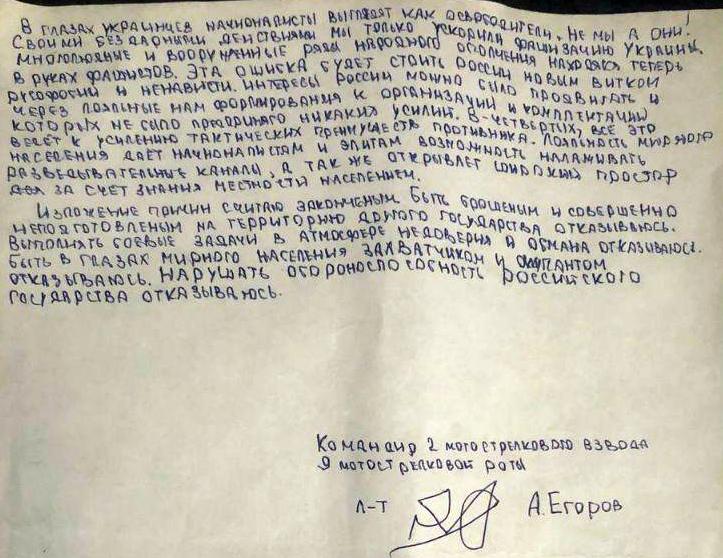 В ГЛАЗАХ УКРАИНЦЕВ НАЦИОНАЛИСТЫ ВЫГЛЯДЯТ КАК ОСВОБОДИТЕЛИ. НЕ МЫ А ОНИ!
СВОИМИ БЕЗДАРНЫМИ ДЕЙСТВИЯМИ МЫ ТОЛЬКО УСКОРИЛИ ФАШИЗАЦИЮ УКРАИНЫ,
МНОГОЛЮДНЫЕ И ВООРУЖЕННЫЕ РЯДЫ НАРОДНОГО ОПОЛЧЕНИЯ НАХОДЯТСЯ ТЕПЕРЬ
В РУКАХ ФАШИСТОВ. ЭТА ОШИБКА БУДЕТ СТОИТЬ РОССИИ НОВЫМ ВИТКОМ
РУСОФОБИИ И НЕНАВИСТИ. ИНТЕРЕСЫ РОССИИ МОЖНО БЫЛО ПРОДВИГАТЬ И
ЧЕРЕЗ ЛОЯЛЬНЫЕ НАМ ФОРМИРОВАНИЯ К ОРГАНИЗАЦИИ И КОМПЛЕКТАЦИИ
КОТОРЫХ НЕ БЫЛО ПРЕДПРИНЯТО НИКАКИХ УСИЛИЙ. В-ЧЕТВЕРТЫХ, ВСЕ ЭТО
ВЕДЁТ К УСИЛЕНИЮ ТАКТИЧЕСКИХ ПРЕИМУЩЕСТВ ПРОТИВНИКА. ЛОЯЛЬНОСТЬ МИРНОГО
НАСЕЛЕНИЯ ДАЁТ НАЦИОНАЛИСТАМ И ЭЛИТАМ ВОЗМОЖНОСТЬ НАЛАЖИВАТЬ
РАЗВЕДЫВАТЕЛЬНЫЕ КАНАЛЫ, А ТАК ЖЕ ОТКРЫВАЕТ ШИРОКИЙ ПРОСТОР
ДЛЯ ЗА СЧЕТ ЗНАНИЯ МЕСТНОСТИ НАСЕЛЕНИЕМ.
ИЗЛОЖЕНИЕ ПРИЧИН СЧИТАЮ ЗАКОНЧЕНЫМ. БЫТЬ БРОШЕНЫМ И СОВЕРШЕННО
НЕПОДГОТОВЛЕНЫМ НА ТЕРРИТОРИЮ ДРУГОГО ГОСУДАРСТВА ОТКАЗЫВАЮСЬ.
ВЫПОЛНЯТЬ БОЕВЫЕ ЗАДАЧИ В АТМОСФЕРЕ НЕДОВЕРИЯ И ОБМАНА ОТКАЗЫВАЮСЬ.
БЫТЬ В ГЛАЗАХ МИРНОГО НАСЕЛЕНИЯ ЗАХВАТЧИКОМ И ОККУПАНТОМ
ОТКАЗЫВАЮСЬ. НАРУШАТЬ ОБОРОНОСПОСОБНОСТЬ РОССИЙСКОГО
ГОСУДАРСТВА ОТКАЗЫВАЮСЬ.
КОМАНДИР 2 МОТОСТРЕЛКОВОГО ВЗВОДА
9 МОТОСТРЕЛКОВОЙ РОТЫ
Л-Т А.ЕГОРОВ